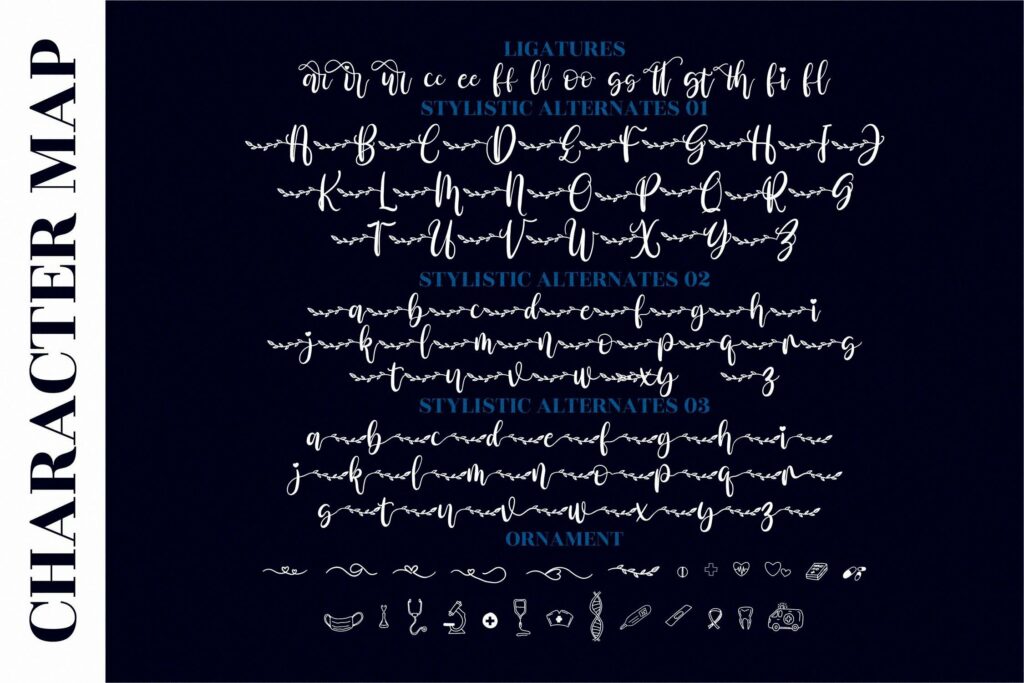 CHARACTER MAP
LIGATURES
ar ir ur cc ee ff ll oo ss tt st th fi fl
STYLISTIC ALTERNATES 01
A B C D E F G H I J
K L M N O P Q R S
T U V W X Y Z
STYLISTIC ALTERNATES 02
a b c d e f g h i
j k l m n o p q r s
t u v w x y z
STYLISTIC ALTERNATES 03
a b c d e f g h i
j k l m n o p q r
s t u v w x y z
ORNAMENT